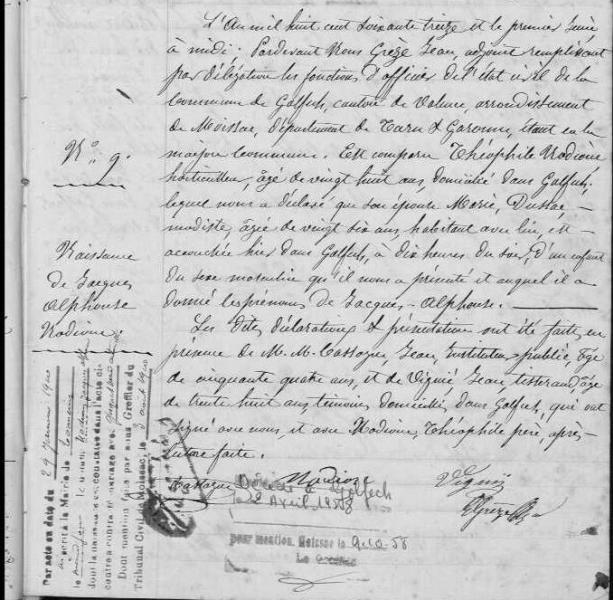 L'An mil huit cent soixante treize et le premier
à midi. Pardevant Nous Grèze Jean, adjoint remplissant
par délégation les fonctions d'officier de l'état civil de la
Commune de Golfech, canton de Valence, arrondissement
de Moissac, département de Tarn & Garonne, étant en la
maison Commune. Est comparu Théophile
âgé de vingt huit ans, domicilié dans Golfech,
lequel nous a déclaré que son épouse Marie,
modiste, âgée de vingt six ans, habitant avec lui, est
accouchée hier dans Golfech, à dix heures du soir, d'un enfant
du sexe masculin qu'il nous a présenté et auquel il a
donné les prénoms de Jacques-Alphonse.
Les dites déclarations & présentations ont été faites en
présence de M.M. Cassagne, Jean, Instituteur public, âgé
de cinquante quatre ans, et de Vignié Jean, tisserand âgé
de trente huit ans, témoins domiciliés dans Golfech, qui ont
signé avec nous, et avec Théophile père, après
lecture faite.
Cassagne
Grèze
N.º 9.
Naissance
de Jacques
Alphonse
Par acte en date du 29 1900
inscrit à la Mairie de
le
dont la naissance est constatée dans l'acte ci-
contre a contracté mariage avec
Dont mention faite par nous Greffier du
Tribunal Civil de Moissac, le 3 1900
Décédé à Golfech
le 2 Avril 1958
pour mention. Moissac le 9.4.58
Le Greffier